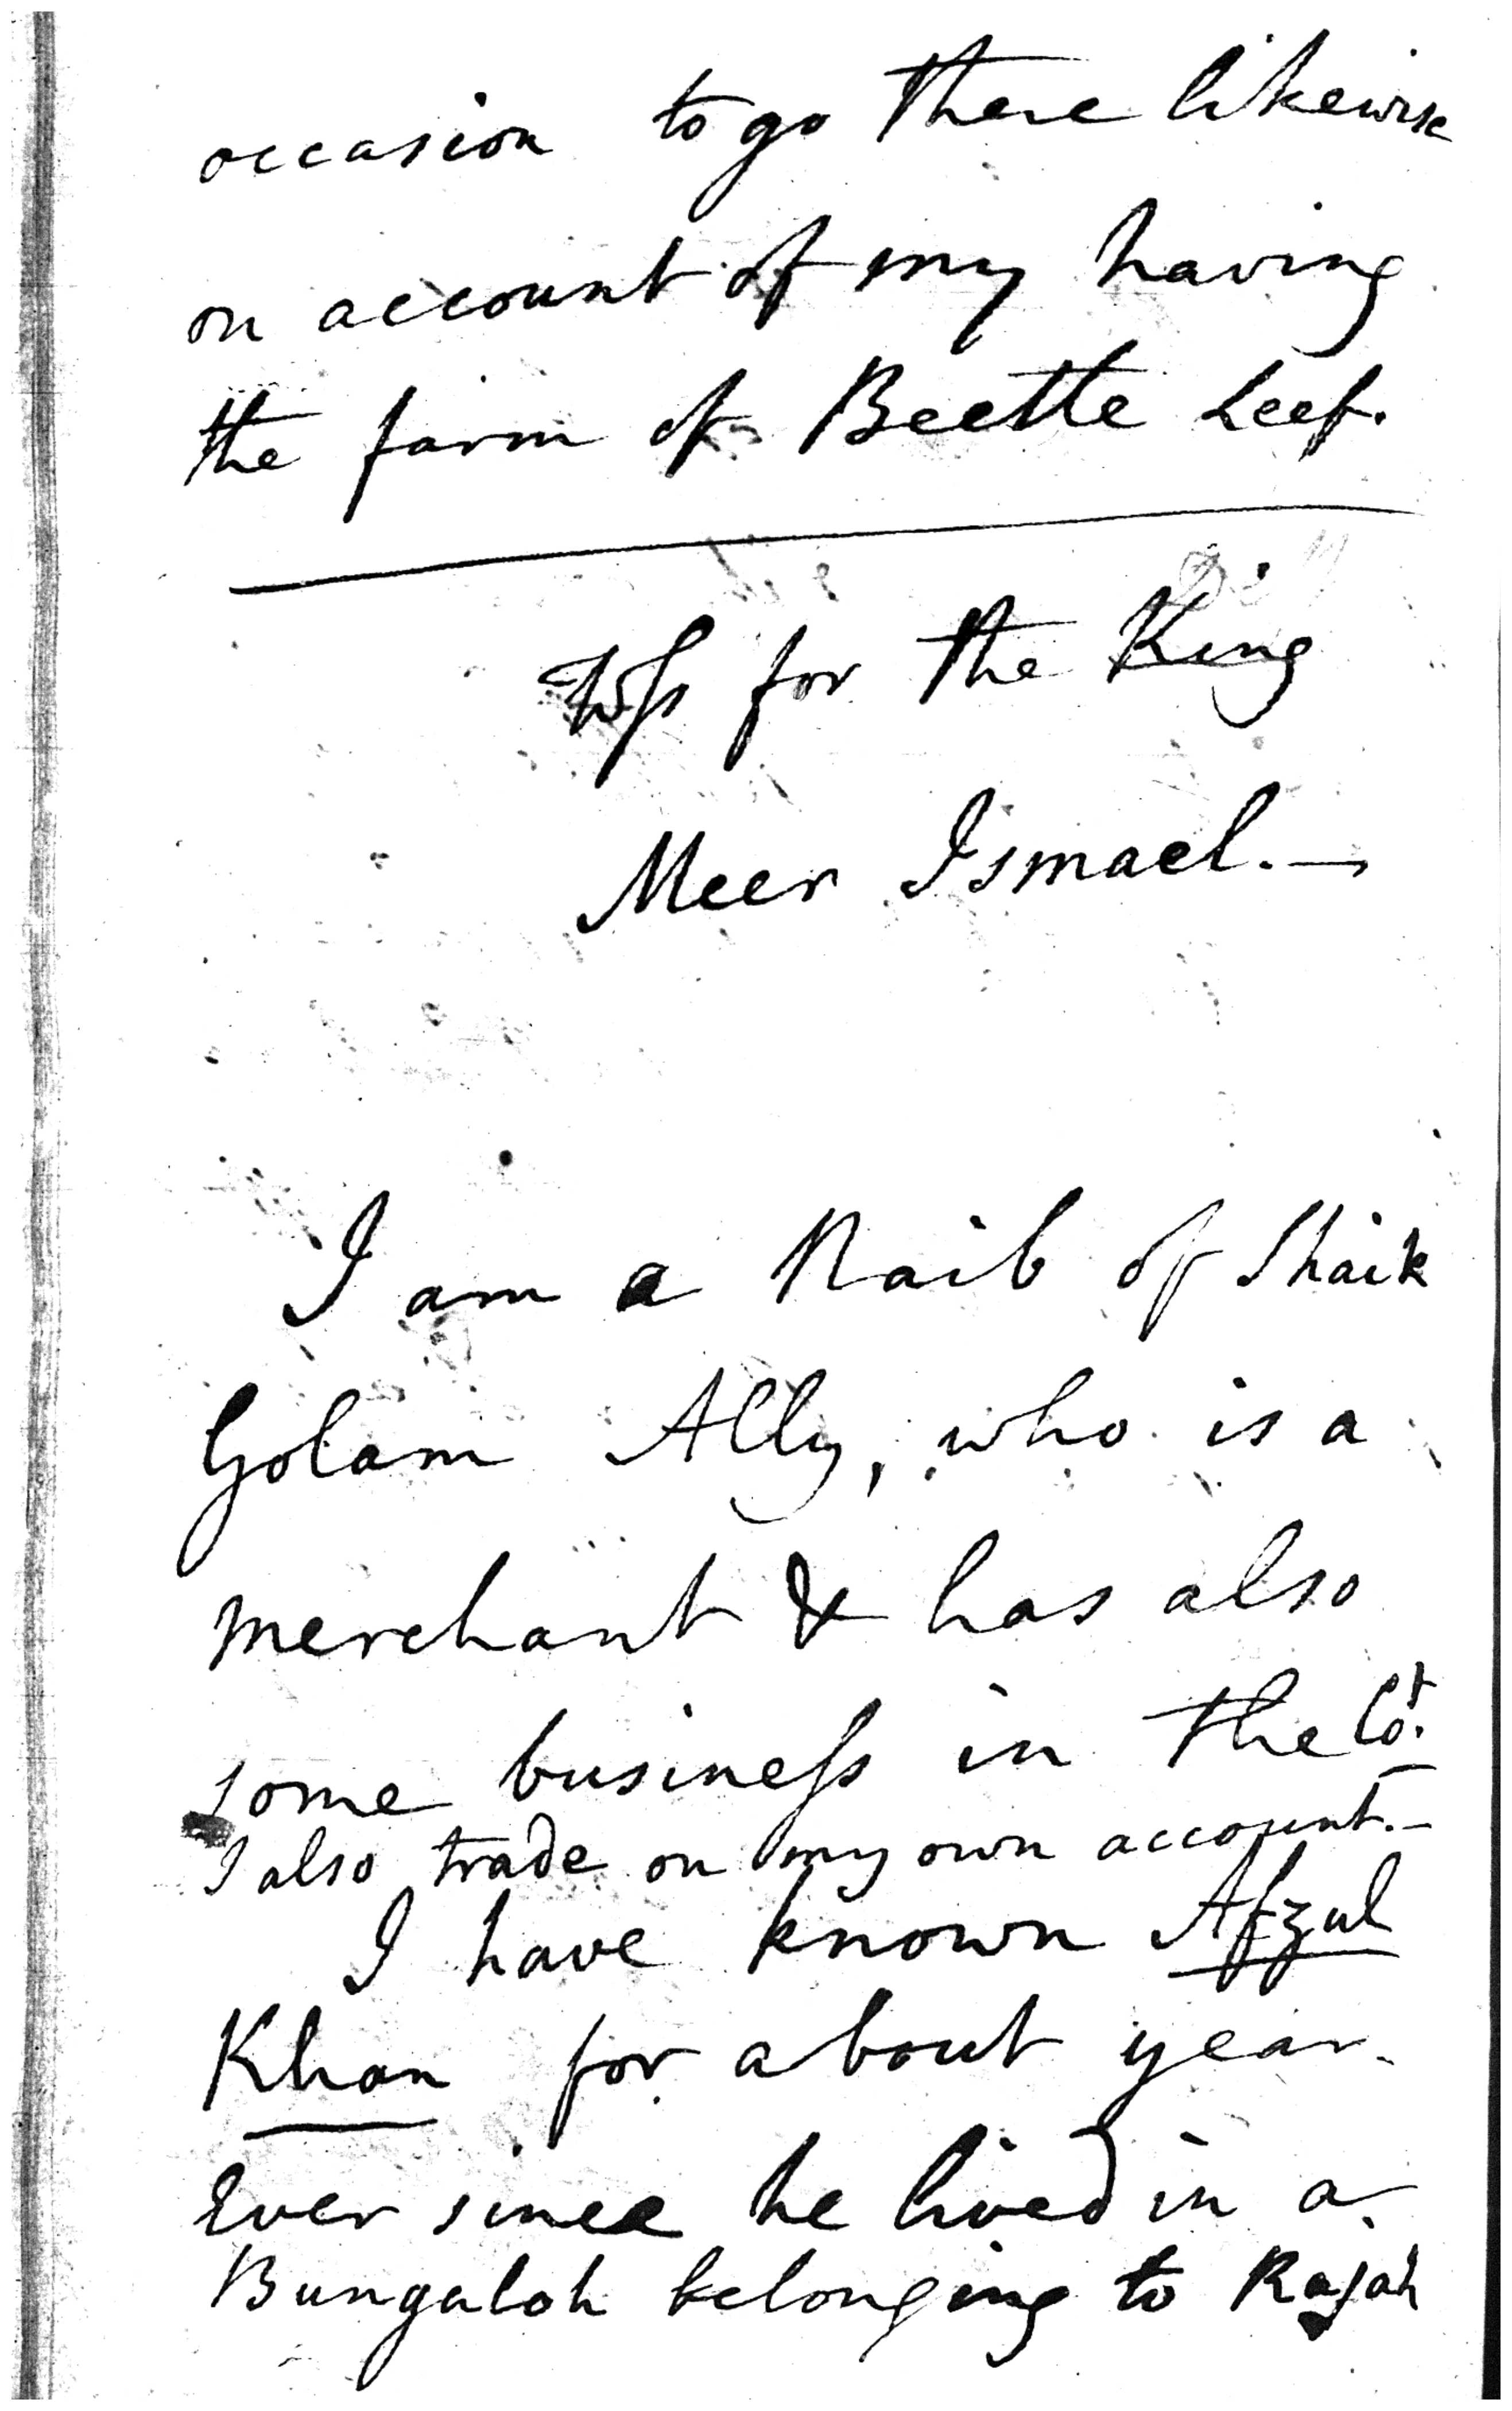 occasion to go there likewise
on account of my having
the farm of Beetle Leef.
Wſs for the King
Meer Ismael. —
I am a Naib of Shaik
Golam Ally, who is a
merchant & has also
some busineſs in the Cot.
I also trade on my own account. —
I have known Afzul
Khan for about year.
Ever since he lived in a
Bungaloh belonging to Rajah